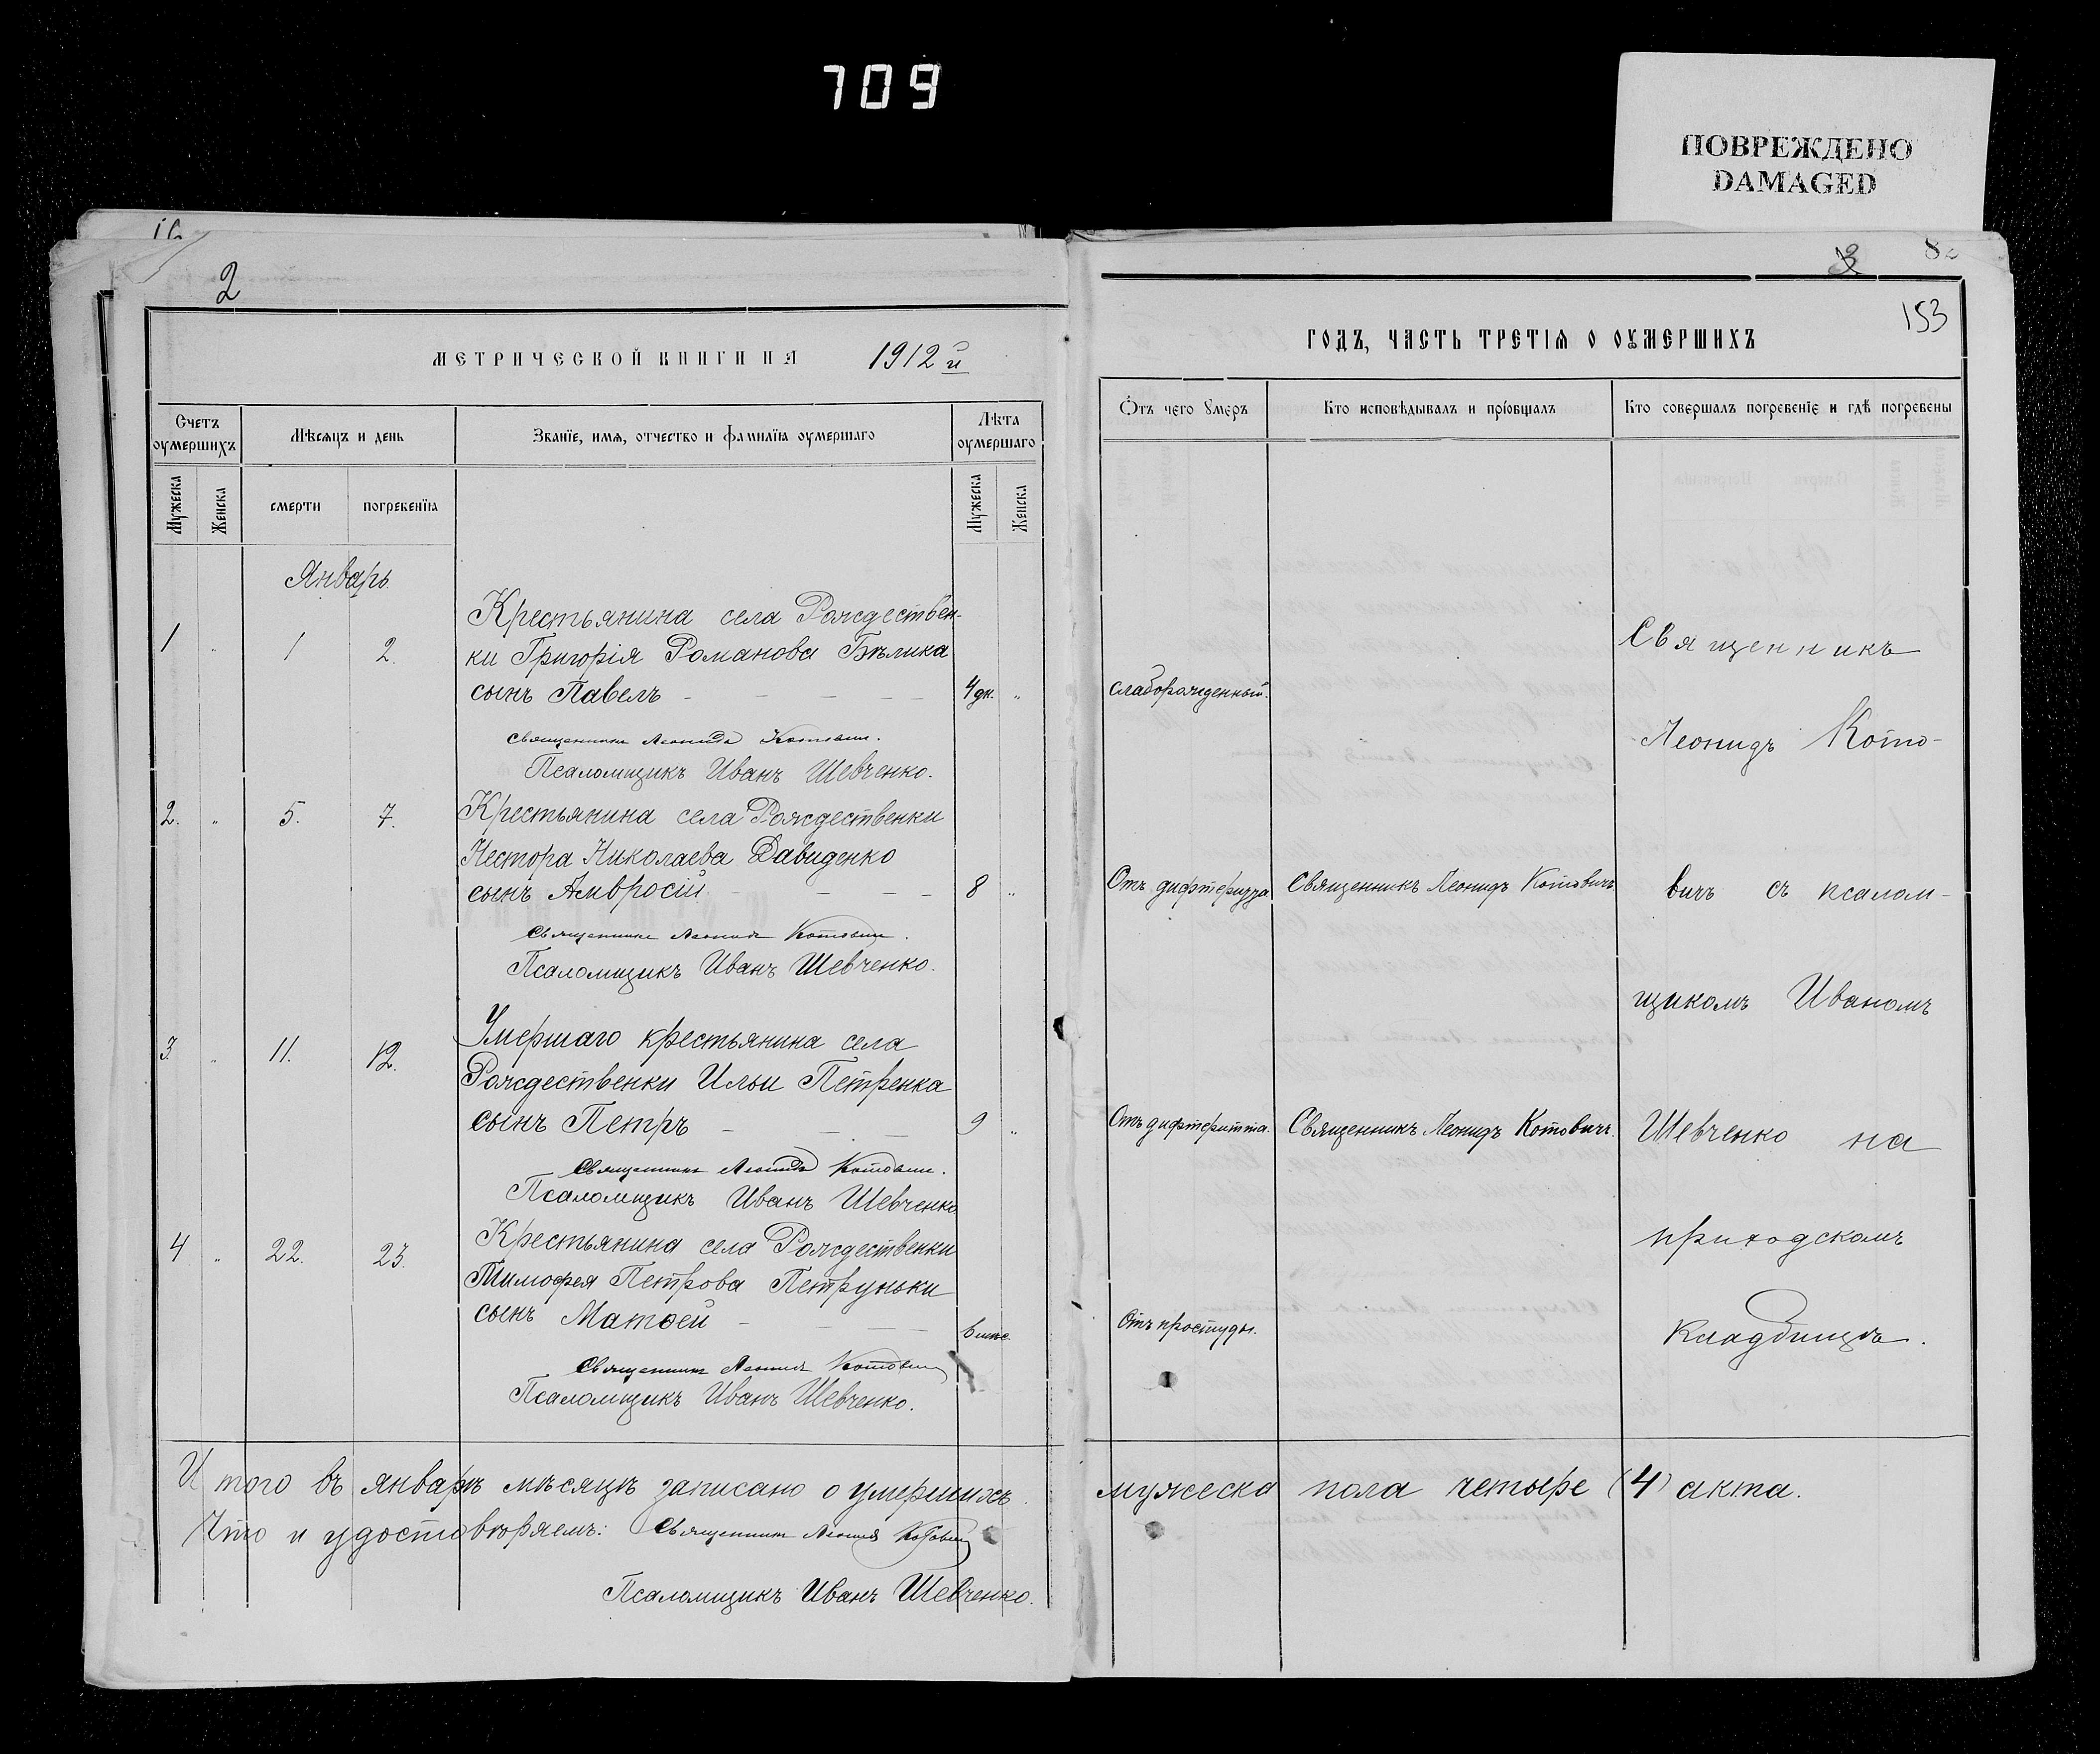 709
ПОВРЕЖДЕНО
DAMAGED
2
МЕТРИЧЕСКОЙ КНИГИ НА 1912 й
Счетъ оумершихъ
Мѣсяцъ и день
Званїе, имѧ, отчество и фамилїѧ оумершаго
Лѣта оумершаго
Мужеска
Женска
смерти
погребенїѧ
Мужеска
Женска
Январь.
Крестьянина села Рождествен-
1 " 1 2. ки Григорія Романова Бѣлика
сынъ Павелъ - - - - 4 дн. "
Священникъ Леонидъ Котовичъ.
Псаломщикъ Иванъ Шевченко.
2. " 5. 7. Крестьянина села Рождественки
Нестора Николаева Давиденко
сынъ Амвросій - - - - 8 "
Священникъ Леонидъ Котовичъ.
Псаломщикъ Иванъ Шевченко.
Умершаго крестьянина села
3 " 11. 12. Рождественки Ильи Петренка
сынъ Петръ - - - 9 "
Священникъ Леонидъ Котовичъ.
Псаломщикъ Иванъ Шевченко
4 " 22. 23. Крестьянина села Рождественки
Тимофея Петрова Петруньки
сынъ Матѳей - - - 6 мѣс.
Священникъ Леонидъ Котовичъ
Псаломщикъ Иванъ Шевченко.
Итого въ январѣ мѣсяцѣ записано о умершихъ
Что и удостовѣряемъ: Священникъ Леонидъ Котовичъ
Псаломщикъ Иванъ Шевченко.
3 82
153
ГОДЪ, ЧАСТЬ ТРЕТІѦ О ОУМЕРШИХЪ
Ѿтъ чего умеръ
Кто исповѣдывалъ и прїобщалъ
Кто совершалъ погребенїе и гдѣ погребены
Священникъ
слаборожденный.
Леонидъ Кото-
Отъ дифтеридта Священникъ Леонидъ Котовичъ вичъ съ псалом-
щикомъ Иваномъ
Отъ дифтеритта. Священникъ Леонидъ Котовичъ. Шевченко на
приходскомъ
Отъ простуды. кладбищѣ.
мужеска пола четыре (4) акта.